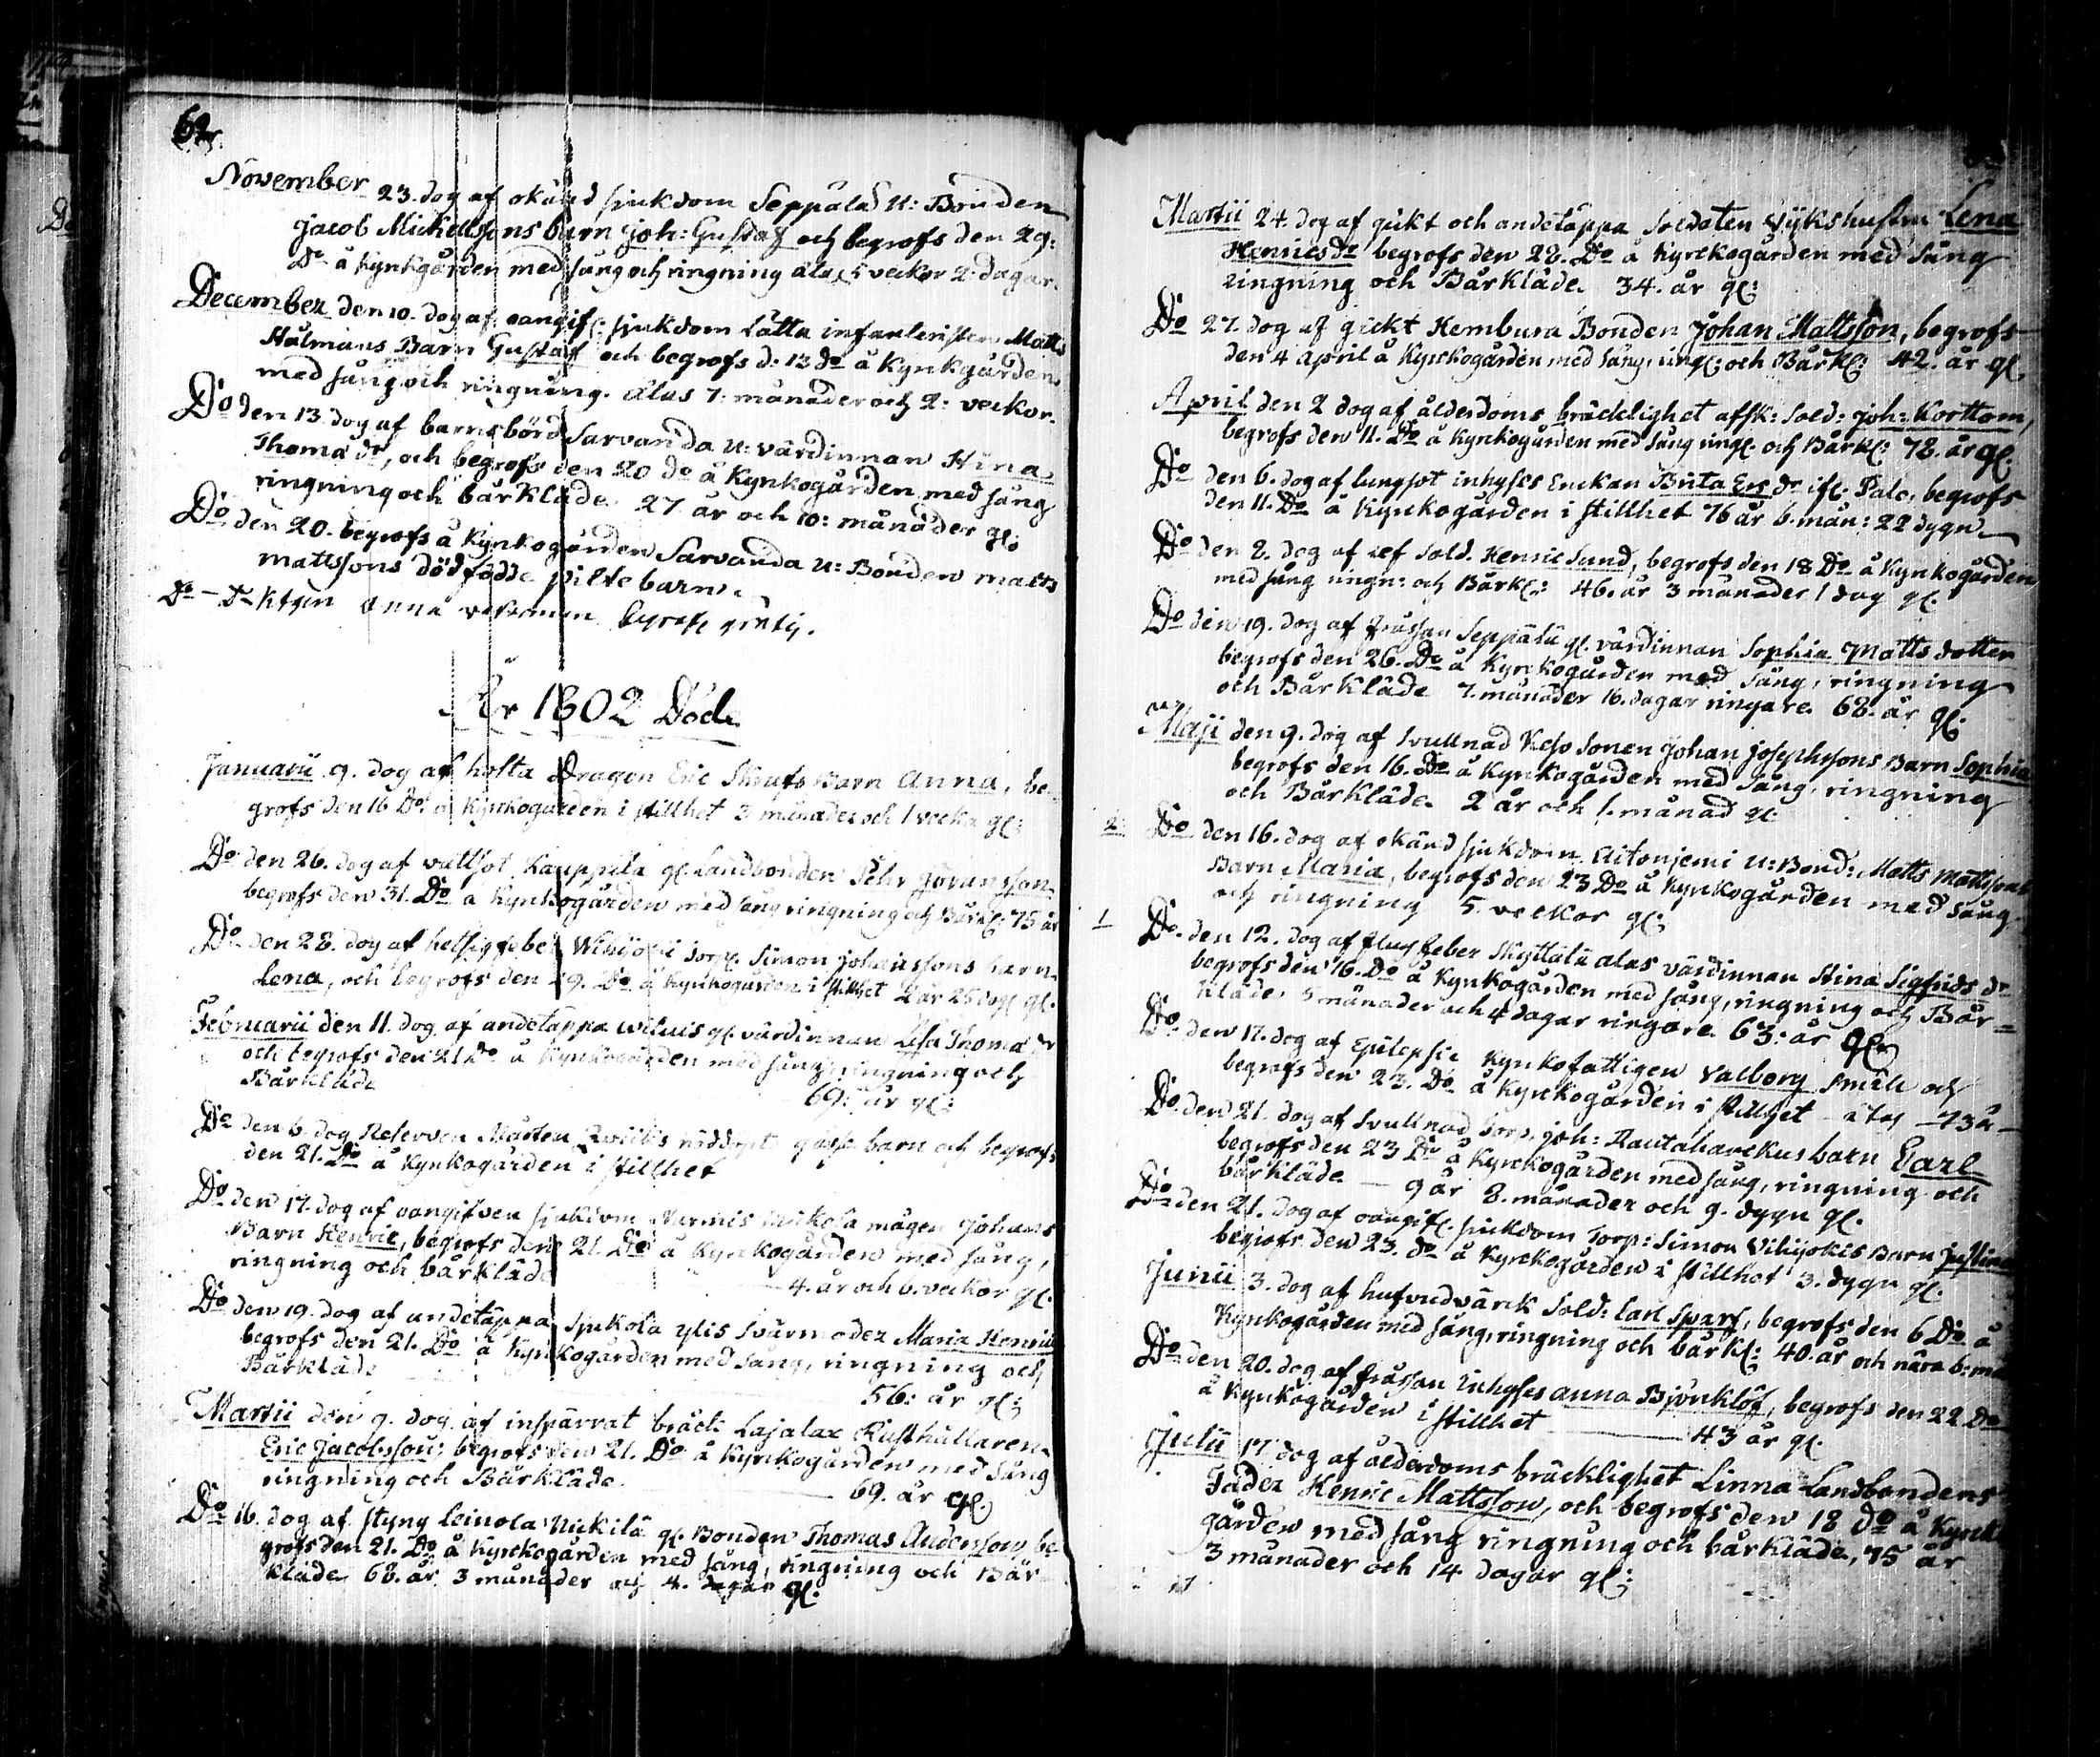 62.
November 23. dog af okänd sjukdom Seppälä U: Bonden
Jacob Michelssons barn Joh: Gustaf och begrofs den 29:
Do å Kyrkgården med sång och ringning alas 5 veckor 2: dagar.
December den 10. dog af oangif: sjukdom Lätta infanteristen Matts
Hålmans Barn Gustaf och begrofs d: 13 do å Kyrkgården
med sång och ringning. Alas 7: månader och 2: veckor.
Do den 13. dog af barnsbörd Sarvanda U: värdinnan Stina
Thomædr, och begrofs den 20 do å Kyrkogården med sång
ringning och bårkläde 27 år och 10: månader gl:
Do den 20. begrofs å Kyrkogården Sarvanda U: Bonden Matts
Mattssons dödfödde piltebarn.
Do - Do Anna
År 1802 Döde
Januarii 9. dog af hosta Dragon Eric Skrufs Barn Anna, be-
grofs den 16 Do å Kyrkogården i stillhet 3 månader och 1 vecka gl:
Do den 26. dog af vattsot Kauppila gl. Landbonden Pehr Göransson
begrofs den 31. Do å Kyrkogården med sång ringning och Bårkl: 75 år
Do den 28. dog af hetsig feber Wihijoki torp. Simon Johanssons barn
Lena, och begrofs den 29. Do å Kyrkogården i stillhet 2 år 25 dag. gl.
Februarii den 11. dog af andetäppa gl. värdinnan Lisa Thomædr
och begrofs den 21 Do å Kyrkogården med sång, ringning och
Bårkläde 69: år gl:
Do den 6. dog Reserven Mårten nöddöpt barn och begrofs
den 21. Do å Kyrkogården i stillhet
Do den 17. dog af oangifven sjukdom Nurmis mågen Johans
Barn Henric, begrofs den 21. Do å Kyrkogården med sång,
ringning och bårkläde 4. år och 6. veckor gl.
Do den 19. dog af andetäppa Sjukola ylis Svärmoder Maria Henrics
begrofs den 21. Do å Kyrkogården med sång, ringning och
Bårkläde 56: år gl:
Martii den 9. dog af inspärrat bråck Lajalax Rusthållaren
Eric Jacobsson: begrofs den 21. Do å Kyrkogården med sång
ringning och Bårkläde 69. år gl.
Do 16. dog af styng Leinola Nickilä gl. Bonden Thomas Andersson be-
grofs den 21. Do å Kyrkogården med sång, ringning och Bår-
kläde 68. år 3 månader och 4. dagar gl.
Martii 24. dog af gickt och andetäppa Soldaten Vijks hustru Lena
Henricsdr begrofs den 28. Do å Kyrckogården med sång
ringning och Bårkläde 34. år gl:
Do 27. dog af gickt Hembura Bonden Johan Mattsson, begrofs
den 4 april å Kyrckogården med sång, ringl: och Bårkl: 42. år gl.
April den 2 dog af ålderdoms bräcklighet afsk: Sold: Joh: Korttom,
begrofs den 11. Do å Kyrkogården med sång ringl. och Bårkl: 72. år gl.
Do den 6. dog af lungsot inhyses Enckan Brita Ersdr ifr: Palo, begrofs
den 11. Do å Kyrckogården i stillhet 76 år 6. mån: 22 dygn
Do den 8. dog af ref Sold. Henric Sund, begrofs den 18 Do å Kyrkogården
med sång ringn: och Bårkl: 46. år 3 månader 1 dag gl.
Do den 19. dog af frossan Seppälä gl. värdinnan Sophia Mattsdotter
begrofs den 26. Do å Kyrckogården med sång, ringning
och Bårkläde 7. månader 16. dagar ringare 68. år gl:
Maji den 9. dog af svullnad Keso Sonen Johan Josephssons Barn Sophia
begrofs den 16. Do å Kyrkogården med sång, ringning
och Bårkläde 2 år och 1. månad gl.
2. Do den 16. dog af okänd sjukdom Aitonjemi U: Bond: Matts Mattssons
Barn Maria, begrofs den 23 Do å Kyrkogården med sång
och ringning 5. veckor gl:
1 Do. den 12. dog af flugfeber Skyttälä alas värdinnan Stina Sigfridsdr
begrofs den 16. Do å Kyrkogården med sång, ringning och Bår=
kläde 3 månader och 4 dagar ringare 63: år gl.
Do den 17. dog af Epilepsie Kyrkofattigen Valborg Småll och
begrofs den 23. Do å Kyrckogården i stillhet 73 år
Do den 21. dog af Svullnad torp. Joh: Rautaharckus barn Carl
begrofs den 23 Do å Kyrckogården med sång, ringning och
bårkläde — 9 år 8. månader och 9. dygn gl.
Do den 21. dog af oangif. sjukdom Torp: Simon Vihijokis Barn Justina
begrofs den 23. do å Kyrckogården i stillhet 3. dygn gl.
Junii 3. dog af hufvudvärck Sold: Carl Sparf, begrofs den 6 Do å
Kyrkogården med sång, ringning och bårkl: 40. år och nära 6: må
Do den 20. dog af frossan Inhyses Anna Björklöf, begrofs den 22. Do
å Kyrkogården i stillhet 43 år gl.
Julii 17 dog af ålderdoms bräcklighet Linna Landbondens
Fader Henric Mattsson, och begrofs den 18 do å Kyrck
gården med sång ringning och bårkläde, 75 år
3 månader och 14 dagar gl: